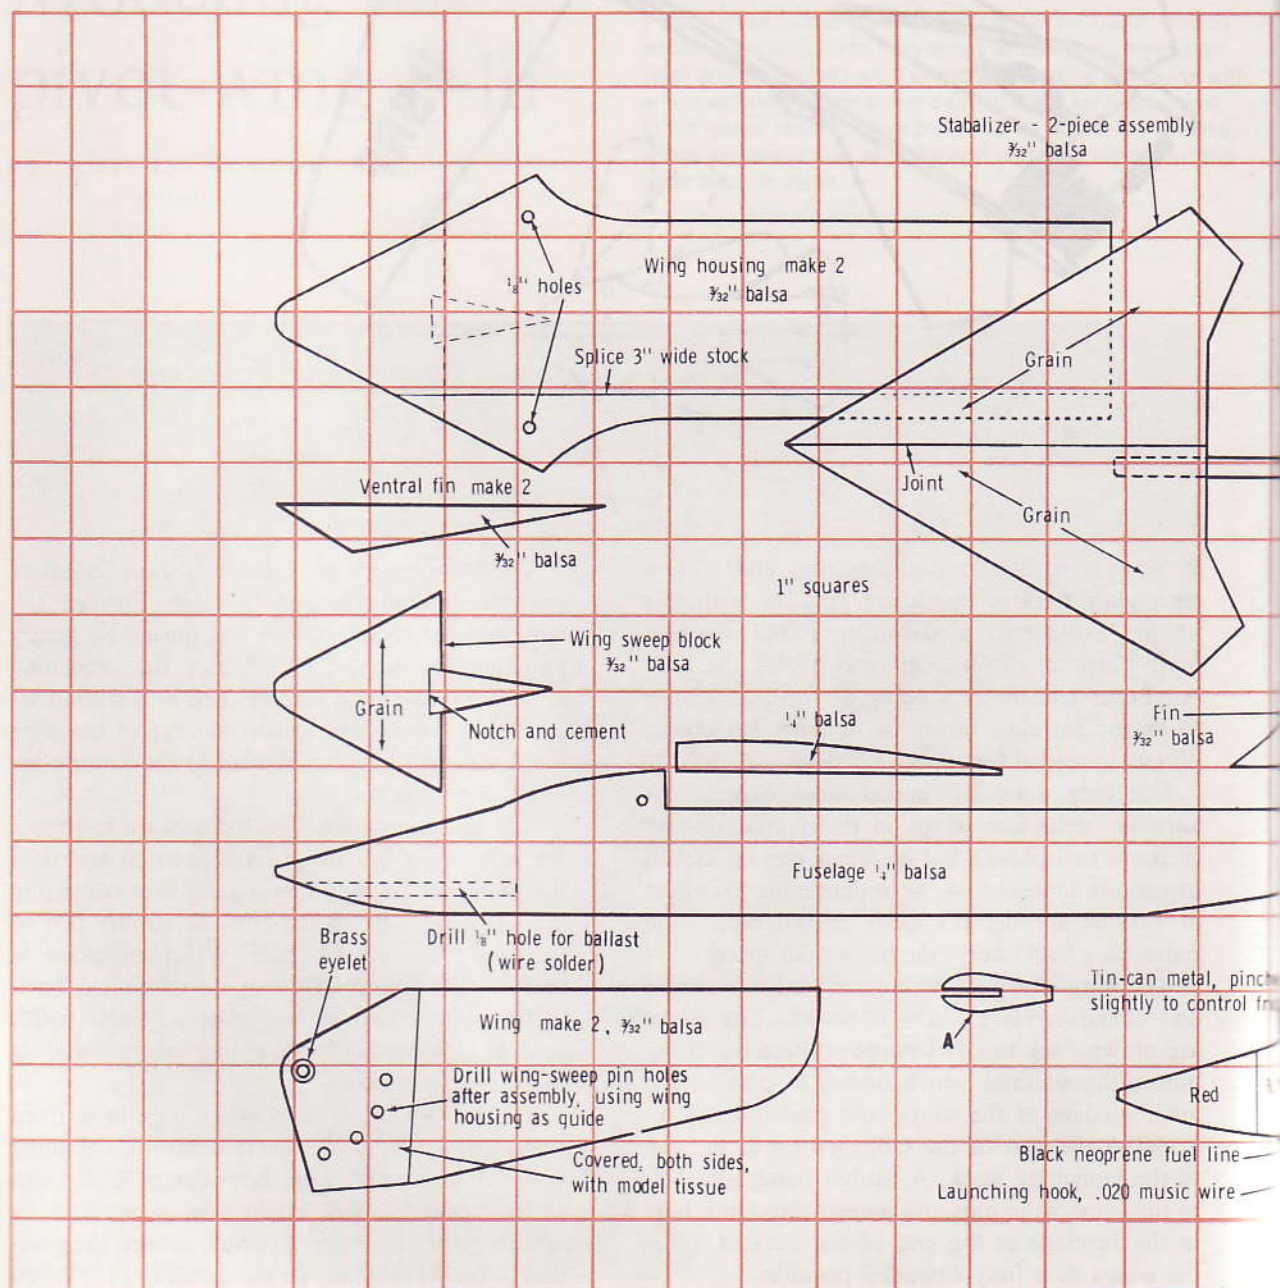 Stabalizer - 2-piece assembly
3/32" balsa
Wing housing make 2
3/32" balsa
1/8" holes
Splice 3" wide stock
Grain
Joint
Grain
Ventral fin make 2
3/32" balsa
1" squares
Wing sweep block
3/32" balsa
Grain
Notch and cement
1/4" balsa
Fin
3/32" balsa
Fuselage 1/4" balsa
Brass
eyelet
Drill 1/8" hole for ballast
(wire solder)
Wing make 2, 3/32" balsa
Drill wing-sweep pin holes
after assembly, using wing
housing as guide
Covered, both sides,
with model tissue
A
Tin-can metal, pinch
slightly to control
Red
Black neoprene fuel line
Launching hook, .020 music wire